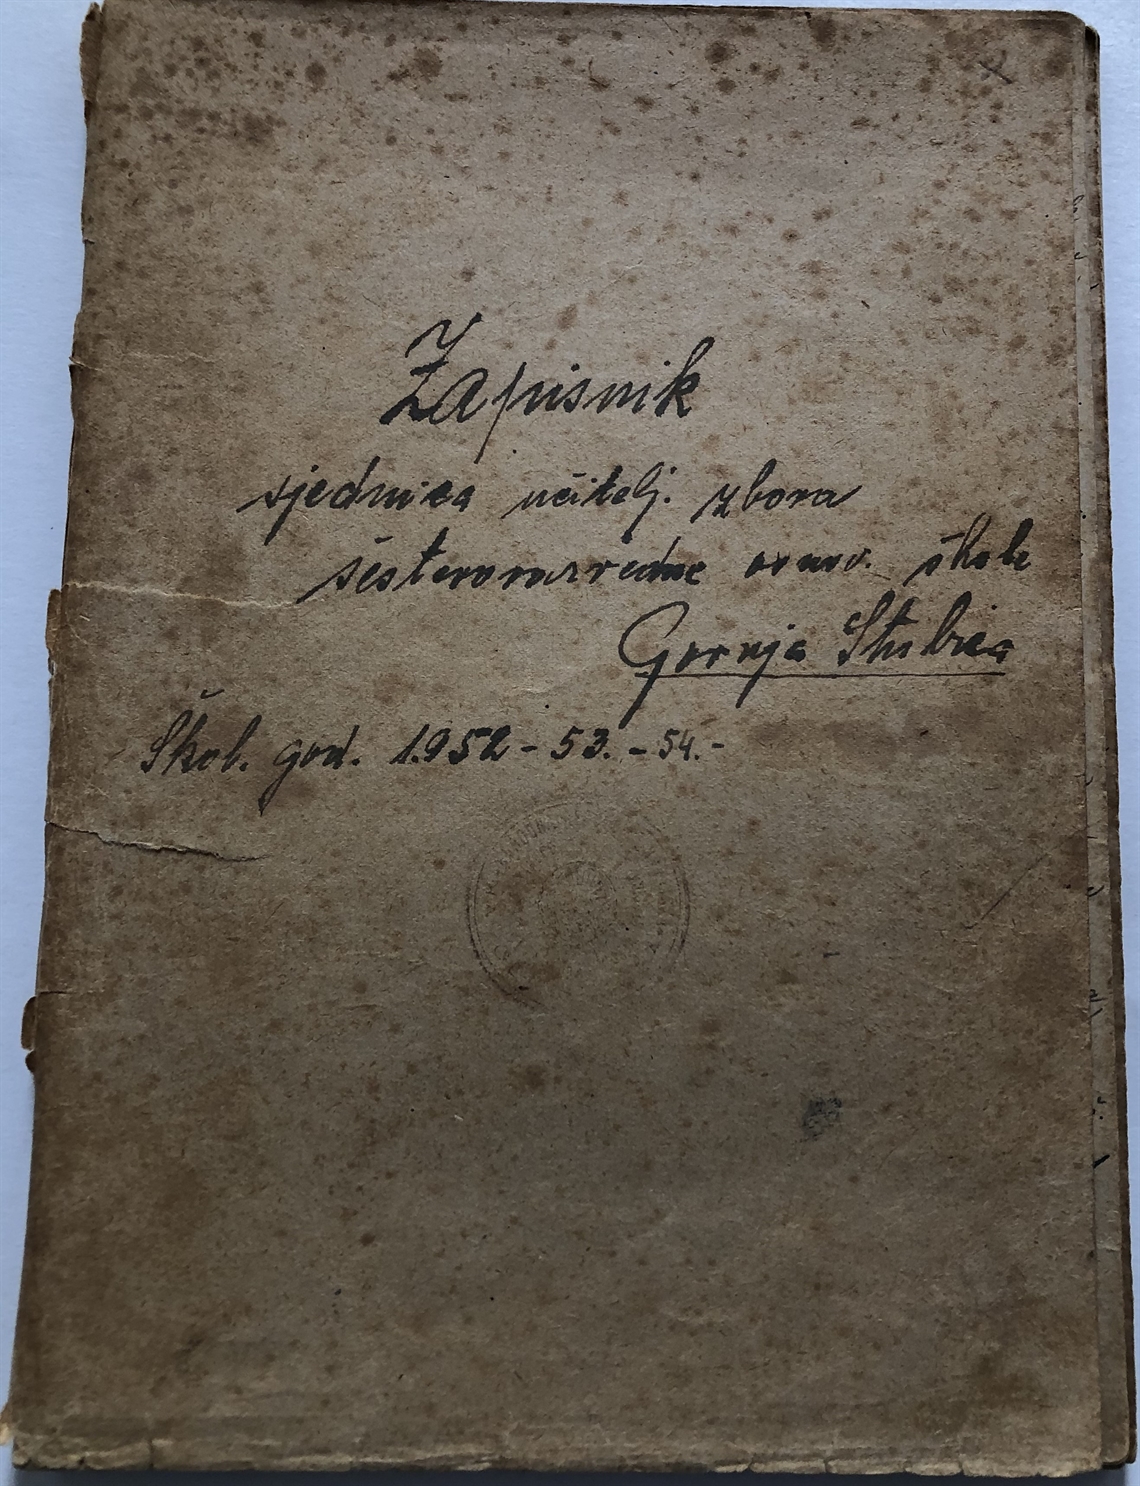 Zapisnik
sjednica učitelj. zbora
šesterorazredne osnov. škole
Gornja Stubica
Škol. god. 1.952 - 53. - 54. -